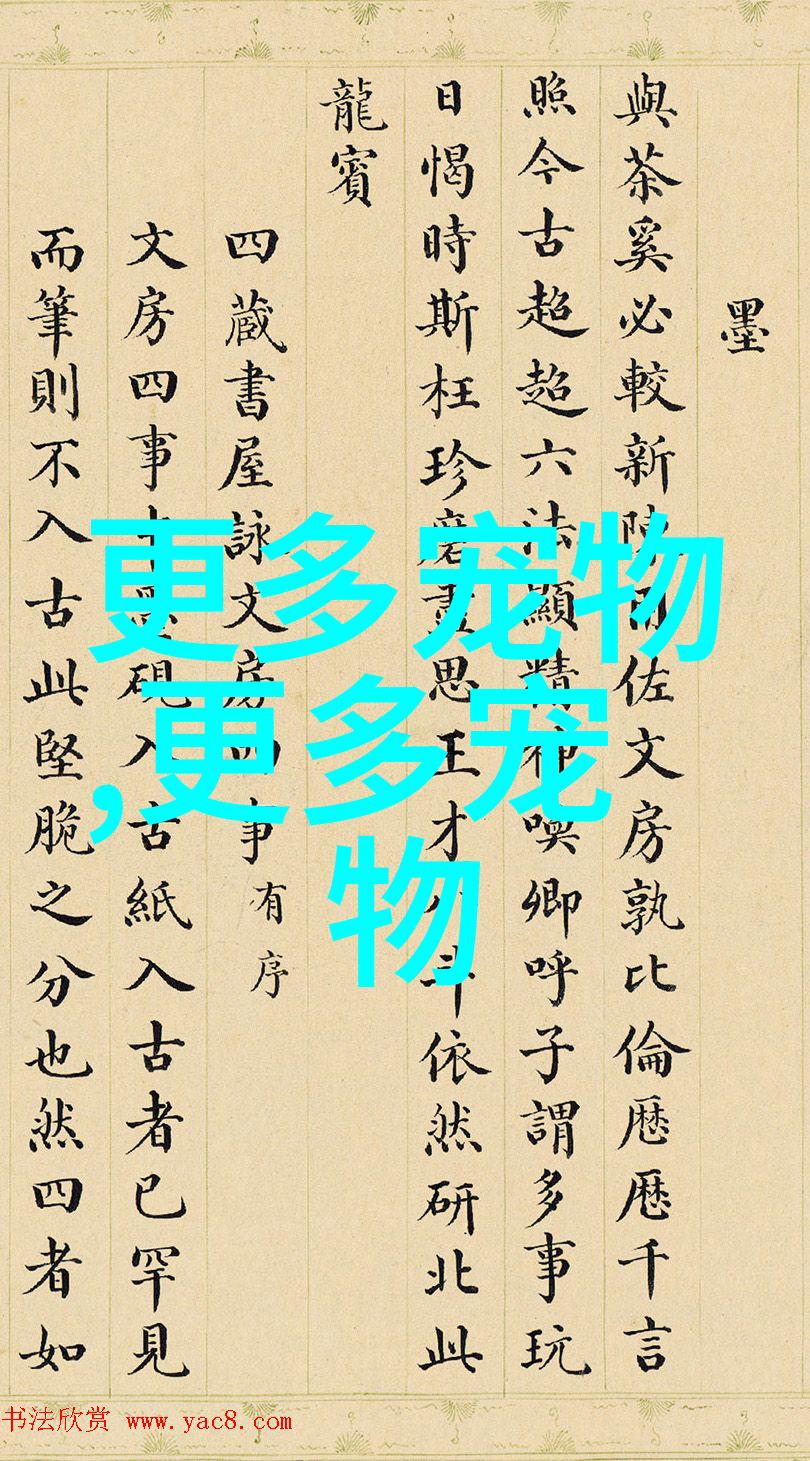 墨
與茶奚必較新陳用佐文房孰比倫歷歷千言
照今古超超六法顯精神喚卿呼子謂多事玩
日愒時斯枉珍磨盡思王才八斗依然研北此
龍賓
四蔵書屋詠文房四事有序
文房四事士墨硯入古紙入古者已罕見
而筆則不入古此堅脆之分也然四者如
更多宠物
,更多宠
物
书法欣赏 www.yac8.com